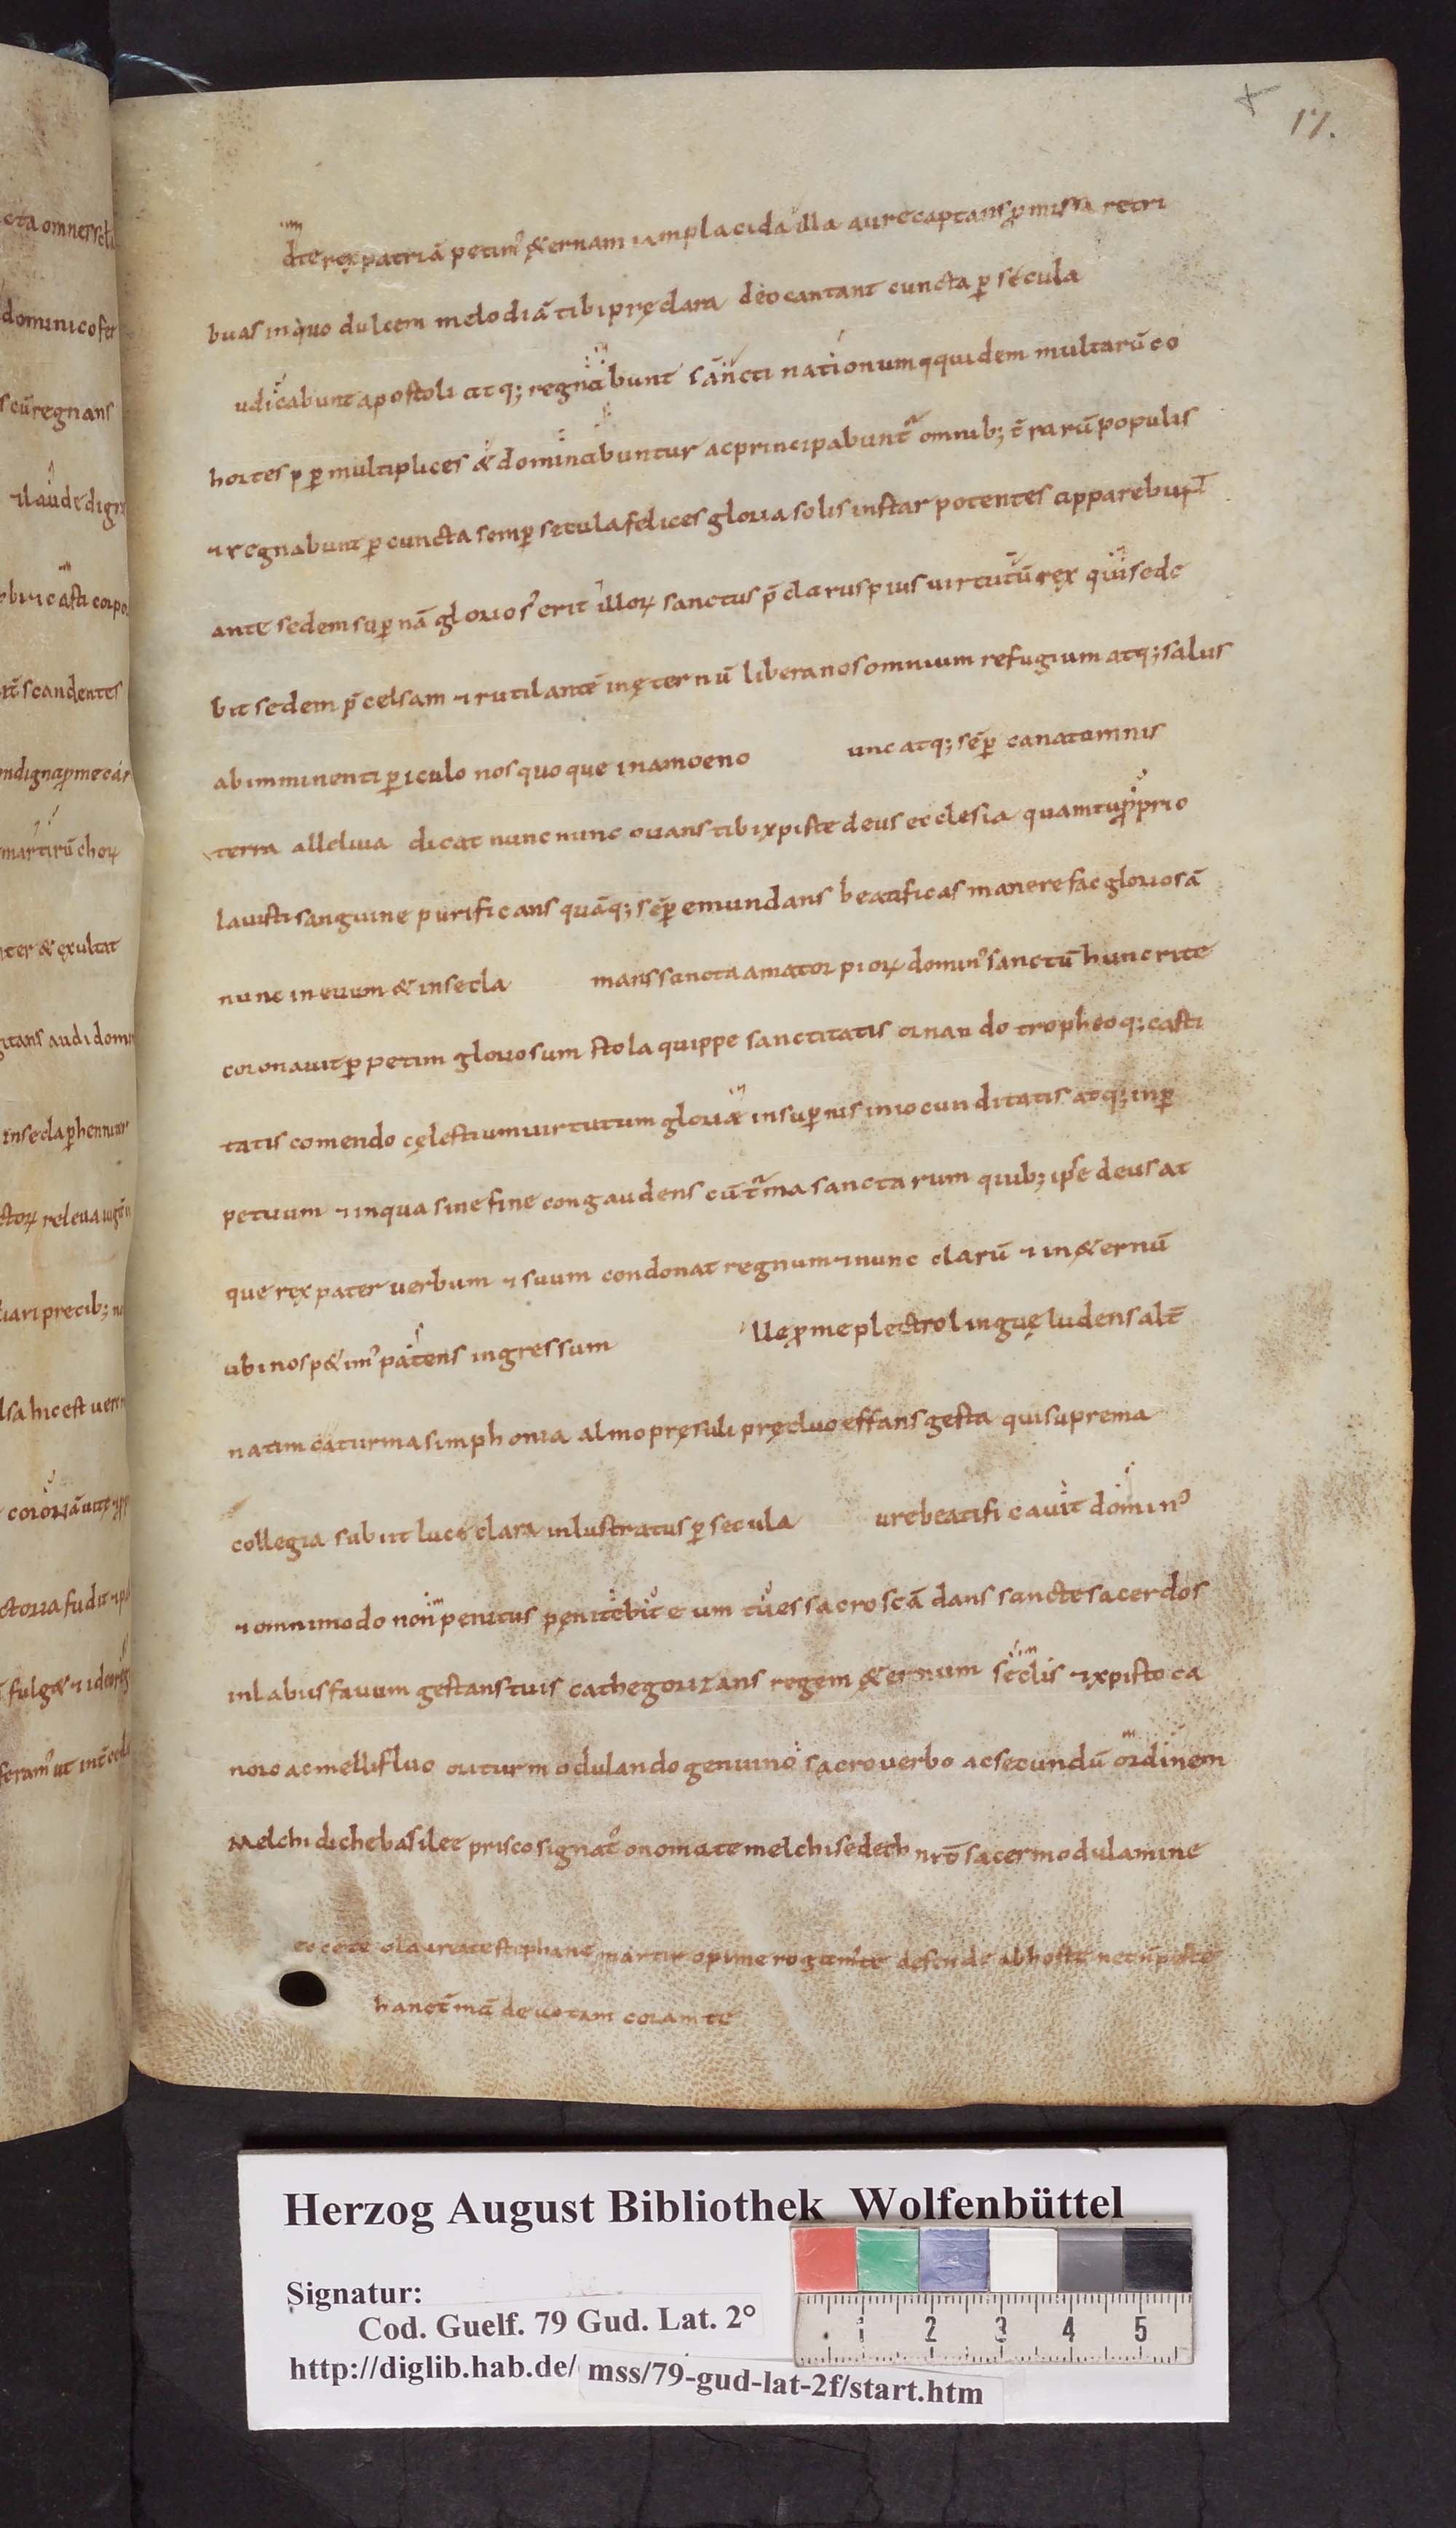 17.
dte rex patriā petim᷒ &ernam iam placida illa aure captans ꝓmissa retri
buas in quo dulcem melodiā tibi pręclara deo cantant cuncta ꝑ secula
udicabunt apostoli atq; regnabunt sāncti nationum quidem multarū co
hortes ꝑmultiplices & dominabuntur ac principabunt᷒ omnib; t̄rarū populis
⁊ regnabunt ꝑ cuncta semꝑ secula felices gloria solis instar potentes apparebunt
ante sedem suꝑnā glorios᷒ erit illoꝝ sanctus p̄clarus pius uirtutū rex qui sede
bit sedem p̄celsam ⁊ rutilantē in ęternū libera nos omnium refugium atq; salus
ab imminenti ꝑiculo nos quoque in amoeno unc atq; sēꝑ canat omnis
terra alleluia dicat nunc nunc ouans tibi xpiste deus ecclesia quam tu ꝓprio
lauisti sanguine purificans quāq; sēꝑ emundans beatificas manere fac gloriosā
nunc in euum & in secla mans sancta amator pioꝝ domin᷒ sanctū hunc rite
coronauit ꝑpetim gloriosum stola quippe sanctitatis ornando tropheoq; casti
tatis comendo cęlestium uirtutum gloriæ in suꝑnis in iocunditatis atq; in ꝑ
petuum ⁊ in qua sine fine congaudens cū t᷒ma sanctarum quib; ipse deus at
que rex pater uerbum ⁊ suum condonat regnum ⁊ nunc clarū ⁊ in &ernū
ubi nos p&im᷒ patens ingressum lle ꝓme plectro linguę ludens alt̄
natim caturma simphonia almo pręsuli pręcluo effans gesta qui suprema
collegia subiit luce clara inlustratus ꝑ secula ure beatificauit domin᷒
⁊ omnimodo non penitus pęnitebit eum tu es sacroscā dans sancte sacerdos
in labus fauum gestans tuis cathegorizans regem &ernum seclis ⁊ xpisto ca
noro ac mellifluo oritur modulando genuino sacro uerbo ac secundū ordinem
Melchi diche basilee prisco signat᷒ onomate melchisedech nr̄o sacer modulamine
eo cete o laureate stephane martir opime rogam᷒ te defende ab hoste nec ū peste
hanc t̄mā deuotam coram te
cta omnes
dominico fer
s cū regnans
⁊ laude dign
ebricasti corpo
scandentes
ndigna ꝓme car
martirū choꝝ
ter & exultat
itans audi dom
in secla ꝑhenniter
ctoꝝ releua
iari precib; n
lsa hic est uer
coronauit
ctoria fudit ⁊
fulg& ⁊
feram᷒ ut int̄
Herzog August Bibliothek Wolfenbüttel
Signatur:
Cod. Guelf. 79 Gud. Lat. 2°
http://diglib.hab.de/ mss/79-gud-lat-2f/start.htm
1 2 3 4 5